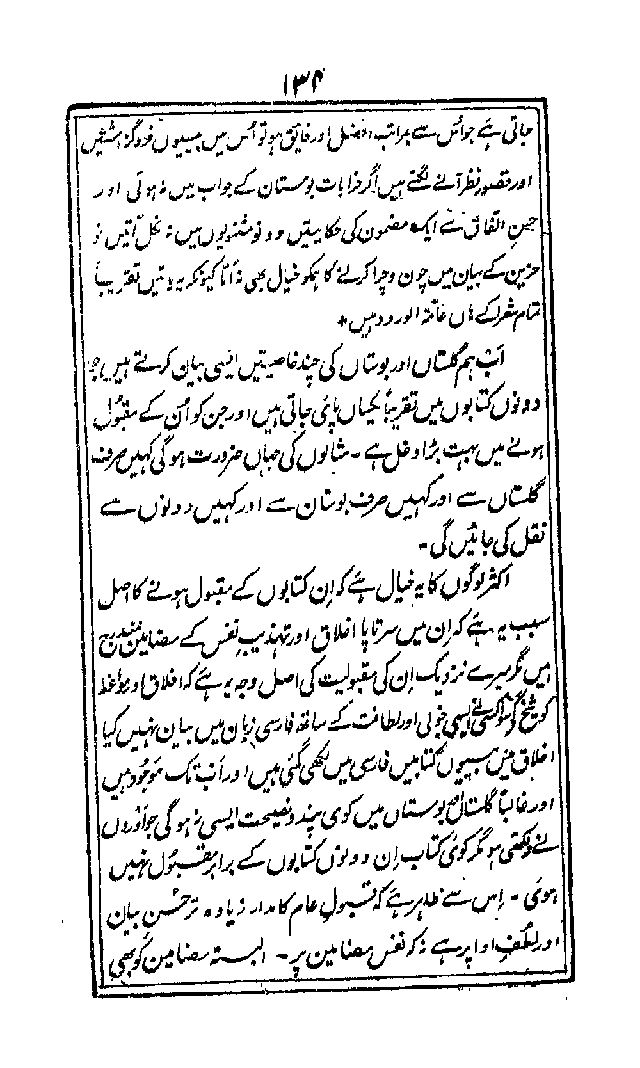 ۱۳۴
جاتی ہے جو اس سے بمراتب افضل اور فایق ہو تو اس میں بیسیوں فروگزاشتیں
اور قصور نظر آنے لگتے ہیں اگر خرابات بوستان کے جواب میں نہ ہوتی اور
حسن اتفاق سے ایک مضمون کی حکایتیں دونو مثنویوں میں نہ نکل آتیں تو
حزین کے بیان میں چون و چرا کرنے کا ہمکو خیال بھی نہ آتا کیونکہ یہ باتیں تقریباً
تمام شعرا کے ہاں عامۃ الورود ہیں *
اب ہم گلستاں اور بوستاں کی چند خاصیتیں ایسی بیان کرتے ہیں جو
دونوں کتابوں میں تقریباً یکساں پائی جاتی ہیں اور جن کو اُن کے مقبول
ہونے میں بہت بڑا دخل ہے ۔ مثالوں کی جہاں ضرورت ہوگی کہیں صرف
گلستاں سے اور کہیں صرف بوستان سے اور کہیں دونوں سے
نقل کی جائیں گی ۔
اکثر لوگوں کا یہ خیال ہے کہ اِن کتابوں کے مقبول ہونے کا اصل
سبب یہ ہے کہ اِن میں سرتاپا اخلاق اور تہذیب نفس کے مضامین مندرج
ہیں مگر میرے نزدیک اِن کی مقبولیت کی اصل وجہ یہ ہے کہ اخلاق و مواعظ
کو شیخ سے کسی نے ایسی خوبی اور لطافت کے ساتھ فارسی زبان میں بیان نہیں کیا
اخلاق میں بیسیوں کتابیں فارسی میں لکھی گئی ہیں اور اَب تک موجود ہیں
اور غالباً گلستاں بوستاں میں کوی پند و نصیحت ایسی نہ ہوگی جو اَوروں
نے نہ لکھی ہو مگر کوی کتاب اِن دونوں کتابوں کے برابر مقبول نہیں
ہوی ۔ اِس سے ظاہر ہے کہ قبول عام کا مدار زیادہ تر حُسنِ بیان
اور لطفِ ادا پر ہے نہ کہ نفس مضامین پر ۔ البتہ مضامین کو بھی